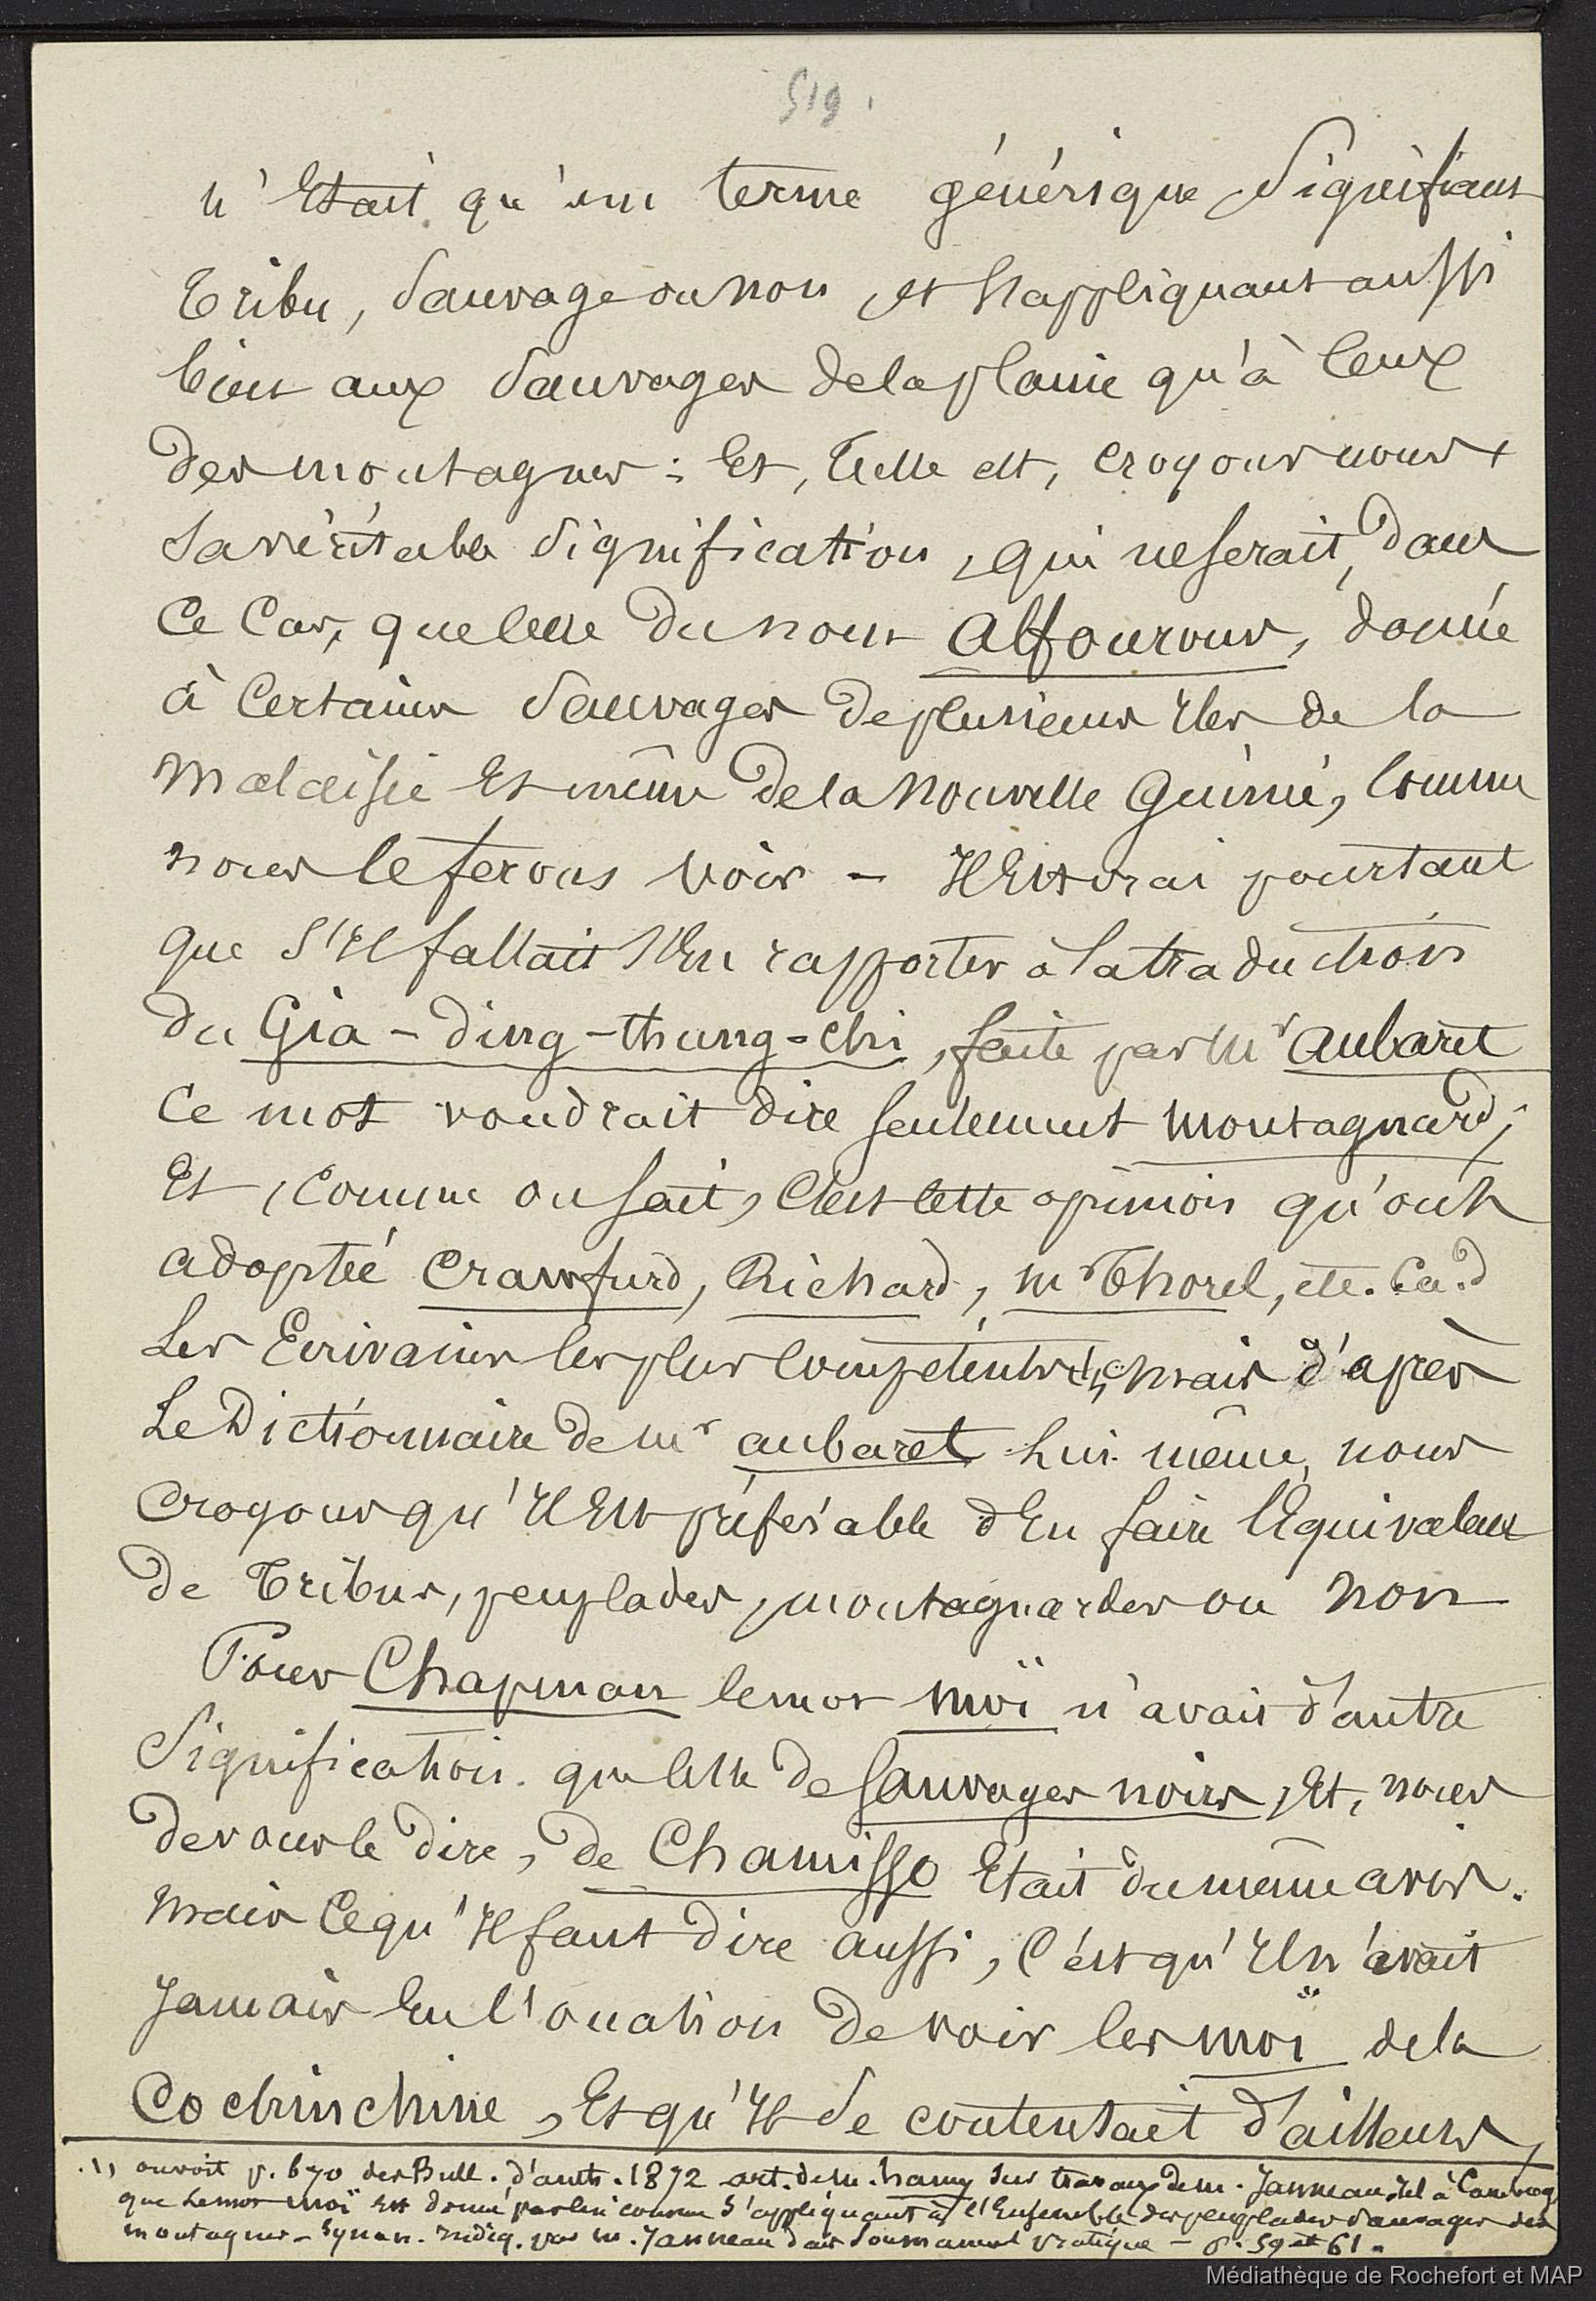 519.
n'était qu'un terme générique, signifiant
tribu, sauvage ou non, et s'appliquant aussi
bien aux sauvages de la plaine qu'à ceux
des montagnes ; Et, telle est, croyons nous
sa véritable signification, qui ne serait, dans
ce cas, que celle du nom Alfourous, donnée
à certains sauvages de plusieurs Iles de la
Malaisie Et même de la Nouvelle Guinée, comme
nous le ferons voir – Il Est vrai pourtant
que s'Il fallait s'En rapporter à la traduction
du Gia-ding-thung-chi, faite par Mr Aubaret
ce mot voudrait dire seulement montagnard ;
Et, comme on sait, c'est cette opinion qu'ont
adoptée Crawfurd, Richard, Mr Thorel, etc. c.a.d
Les Ecrivains les plus compétents (1) mais d'après
Le Dictionnaire de Mr Aubaret lui même, nous
croyons qu'Il Est préférable d'En faire l'Equivalent
de Tribus, peuplades, montagnardes ou non
Pour Chapman le mot moï n'avait d'autre
signification que celle de sauvages noirs, Et, nous
devons le dire, de Chamisso Etait du même avis.
mais ce qu'Il faut dire aussi, c'est qu'Il n'avait
Jamais Eu l'occation de voir les moï de la
Cochinchine, Et qu'Il se contentait d'ailleurs,
(1) on voit p. 670 des Bull. d'anth. 1872 art. de M. hamy sur travaux de M. Janneau, rel à Cambodg
que le mot moï Est donné par lui comme s'appliquant à l'Ensemble des peuplades sauvages des
montagnes – Synon. indiq. par M. Janneau dans son manuel pratique – p. 59 et 61.
Médiathèque de Rochefort et MAP